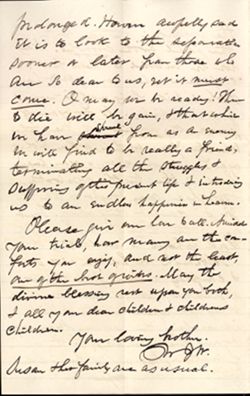 prolonged. However awfully sad
it is to look to the separation
sooner or later from those who
are so dear to us, yet it must
come. O may we be ready! Then
to die will be gain, & that which
we have shrunk from as an enemy
we will find to be really a friend,
terminating all the struggles &
sufferings of the present life & introducing
us to an endless happiness in heaven.
Please give our love to all. Amidst
your trials, how many are the com-
forts you enjoy, and not the least,
one of the best of wives. May the
divine blessing rest upon you both,
& all your dear children & childrens
children.
Your loving brother.
Susan & her family are as usual.